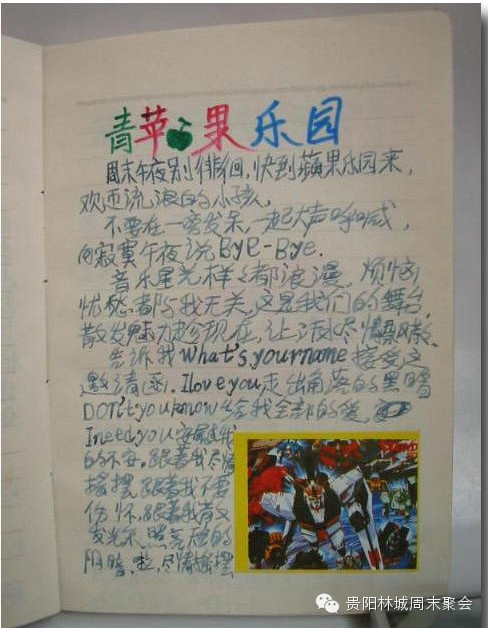 青苹果乐园
周末午夜别徘徊,快到蘋果乐园来,
欢迎流浪的小孩,
不要在一旁发呆,一起大声呼喊,
向寂寞午夜说Bye-Bye.
音乐星光样々都浪漫,烦恼
忧愁都与我无关,这是我们的舞台,
散发魅力趁现在,让汗水尽情飘散.
告诉我what's your name 接受这
邀请函,I love you走出角落的黑暗
Don't you know给我全部的爱,
I need you安抚我
的不安,跟着我尽情
摇摆,跟着我不要
伤怀,跟着我
的
阴暗,啦,尽情摇摆
贵阳林城周末聚会